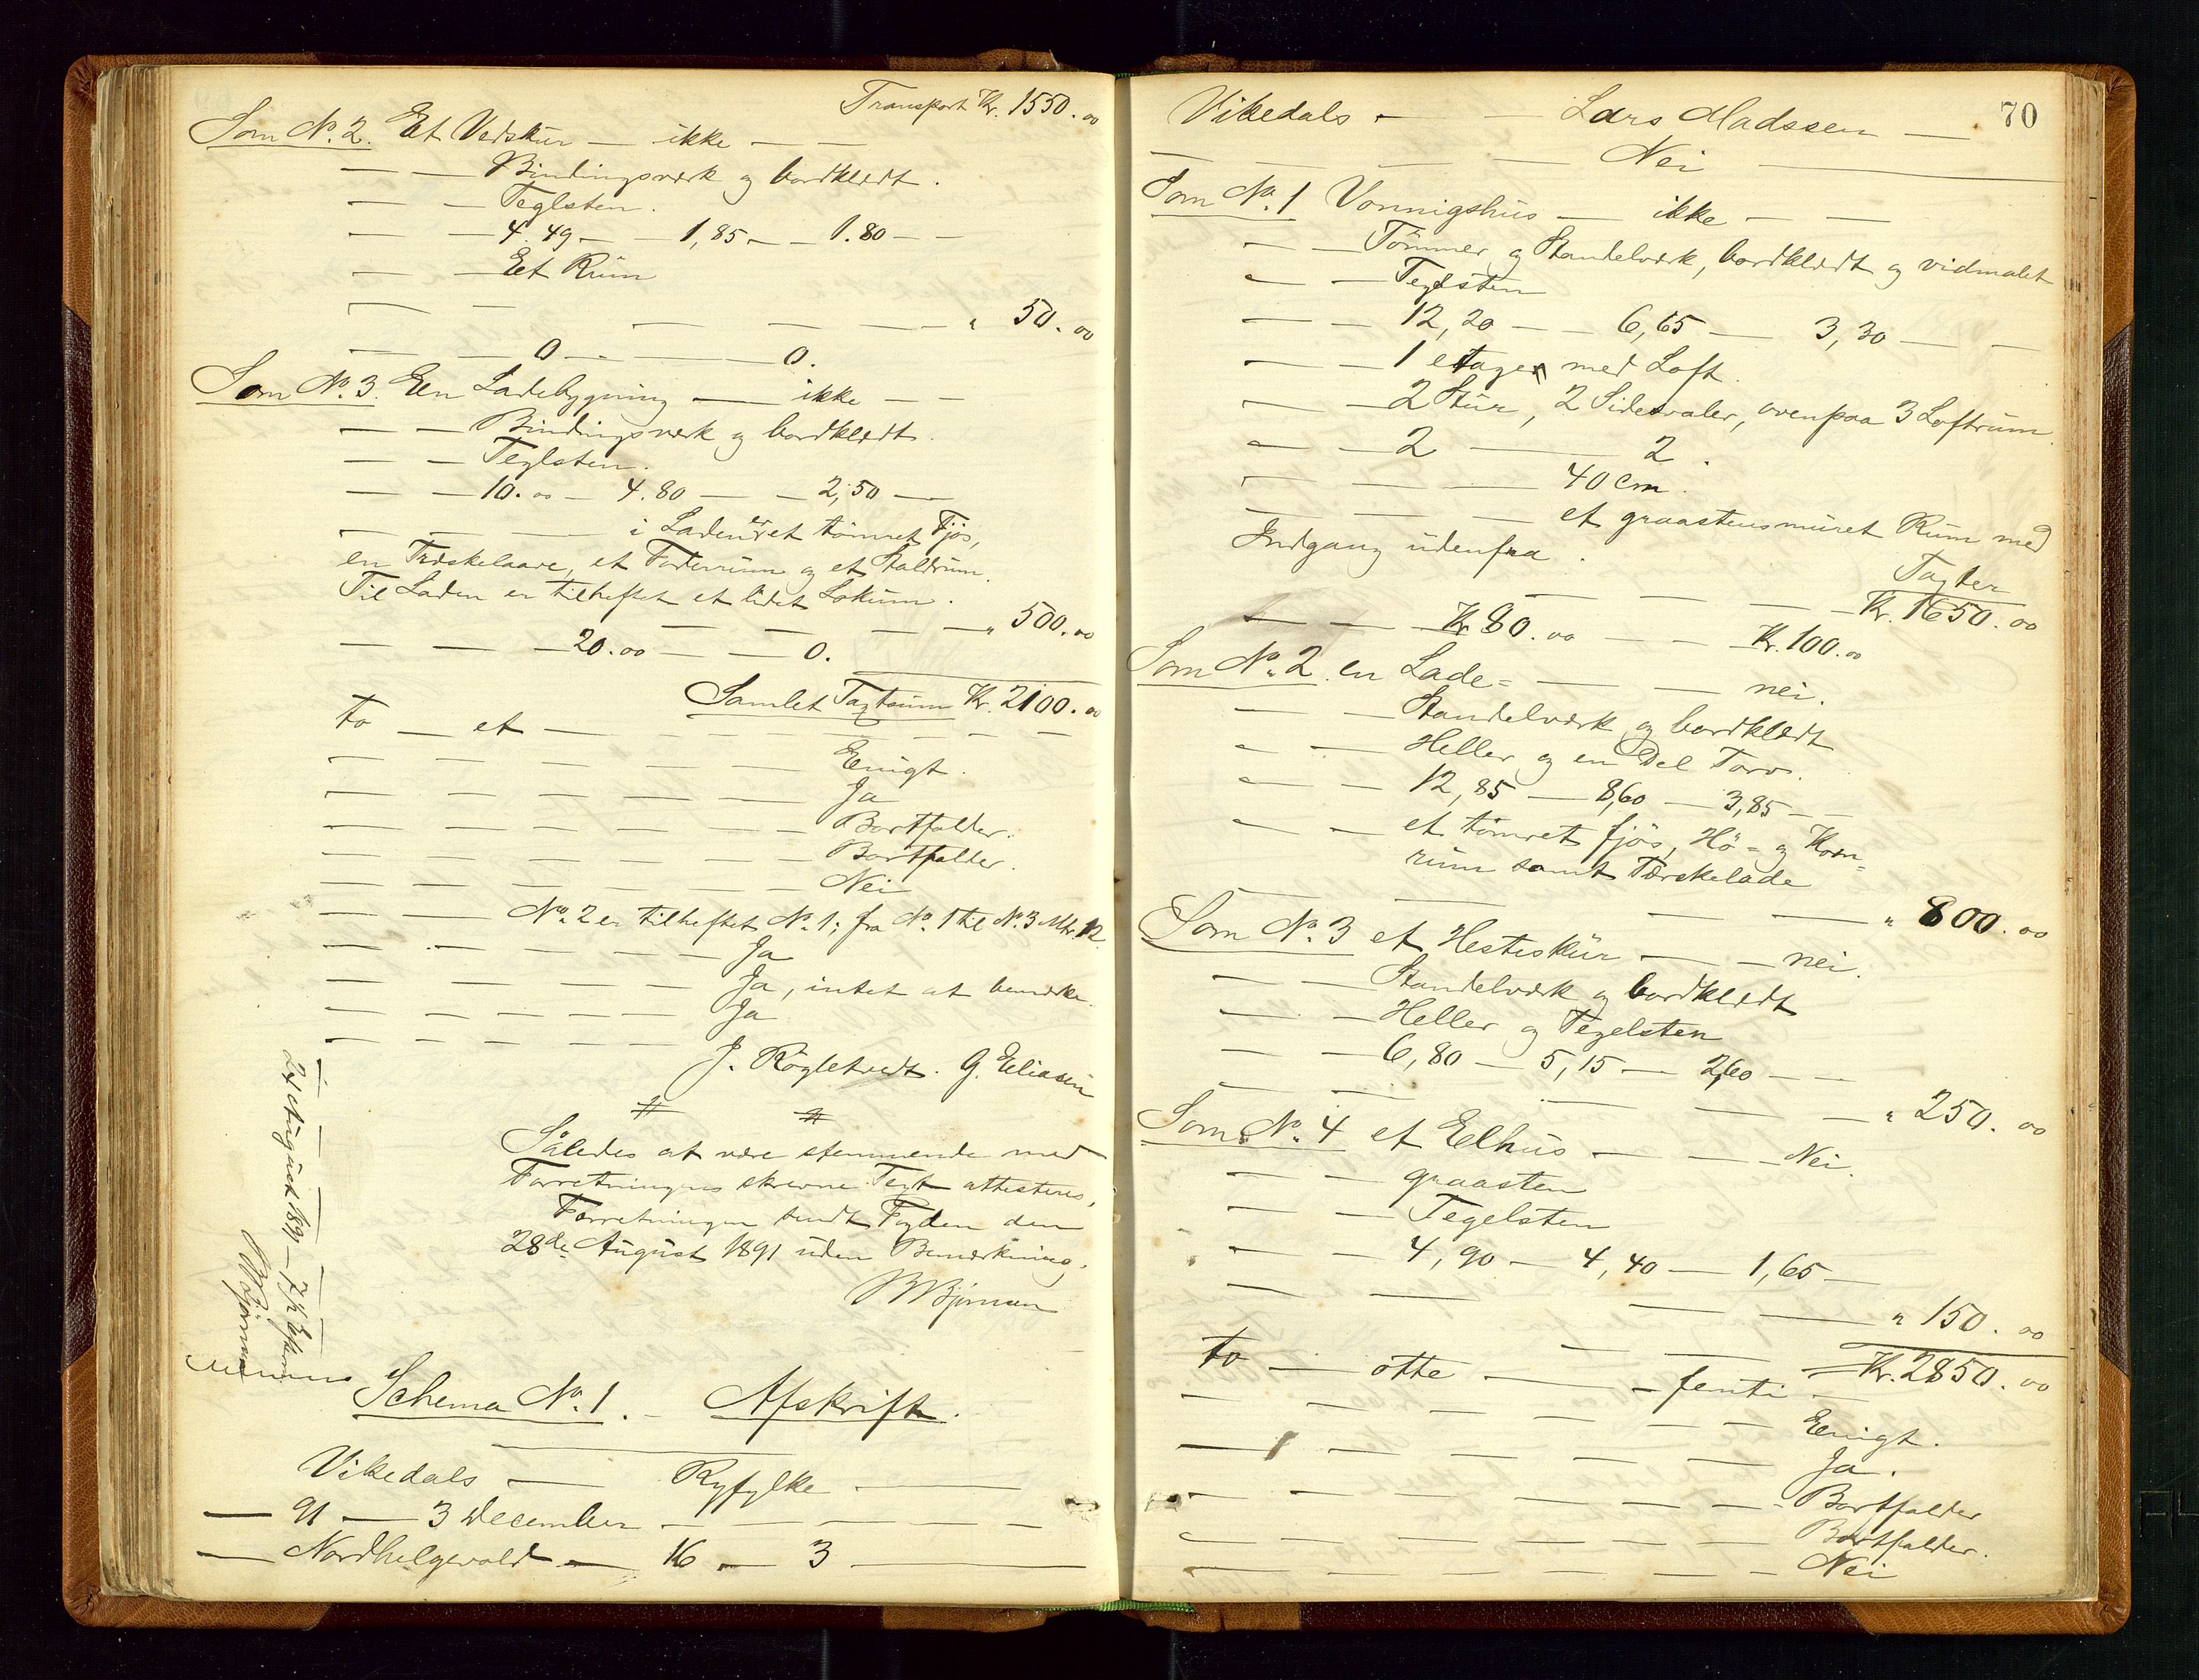 Transport Kr. 1550.00
Som No. 2. Et Vedskur — ikke — —
— — Bindingsværk og bordklædt.
— — Teglsten.
— — 4.49 — — 1,85 — — 1.80 — —
— — Et Rum
— — — — — — " 50.00
— — — 0 — — — 0.
Som No. 3. En Ladebygning — ikke — —
— — Bindingsværk og bordklædt.
— — Teglsten.
— — 10.00 — 4.80 — — 2,50 —
— — — — i Laden er et tömret Fjös,
en Træskelaave, et Foderrum og et Staldrum.
Til Laden er tilheftet et lidet Lokum.
— — — — — " 500.00
— — — 20.00 — — 0.
Samlet Taxtsum Kr. 2100.00
to — et — — — — — — —
— — — — — — Enigt.
— — — — — — Ja
— — — — — — Bortfalder.
— — — — — — Bortfalder.
— — — — — — Nei
— — — No. 2 er tilheftet No. 1; fra No. 1 til No. 3 Mtr. 12.
— — — — — — Ja
— — — — — — Ja, intet at bemærke.
— — — — — — Ja
— — — — — —
J. Rögletvedt. G. Eliasen
# #
Således at være stemmende med
Forretningens skrevne Text attesteres,
Forretningen sendt Fogden den
28de August 1891 uden Bemærkning.
B Bjørnsen
— — — —
24 August 1891 —
B Bjørnsen
Schema No. 1. — Afskrift.
Vikedals — Ryfylke —
— 91 — 3 December — — — — —
— Nordhelgevold — 16 — 3 —
70
Vikedals — — Lars Madssen —
— — — — Nei —
Som No. 1 Vonnigshus — ikke — —
— — Tömmer og Standelværk, bordklædt og vidmalet
— — Teglsten
— — 12,20 — — 6,65 — 3,30 — —
— — 1 etager med Loft.
— — 2 Stur, 2 Sidesvaler, ovenpaa 3 Loftrum.
— — 2 — — 2.
— — — — 40 cm.
— — — — et graastensmuret Rum med
Indgang udenfra.
Taxter
— — — — — Kr. 1650.00
— — Kr 80.00 — — Kr. 100.00
Som No. 2. en Lade = — — nei.
— — Standelværk og bordklædt
— — Heller og en Del Torv.
— — 12,85 — 8,60 — 3,85 — —
— — et tömret fjös, Hö = og Korn =
rum samt Tærskelade
— — — — — " 800.00
Som No. 3 et Hesteskur — — nei.
— — Standelværk og bordklædt
— — Heller og Tegelsten
— — 6,80 — 5,15 — 2,60 — —
— — — — — " 250.00
Som No. 4 et Eelhus — — — Nei.
— — graasten
— — Tegelsten
— — 4,90 — 4,40 — 1,65 —
— — — — " 150.00
— — — Kr. 2850.00
to — otte — — femti —
— — — — — — Enigt.
— — — — — — Ja.
— — — — — — Bortfalder
— — — — — — Bortfalder.
— — — — — — Nei